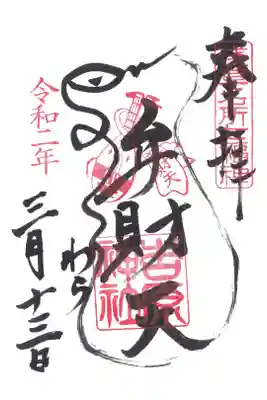 奉拝
弁財天
わら
吉原神社
令和二年
三月十三日